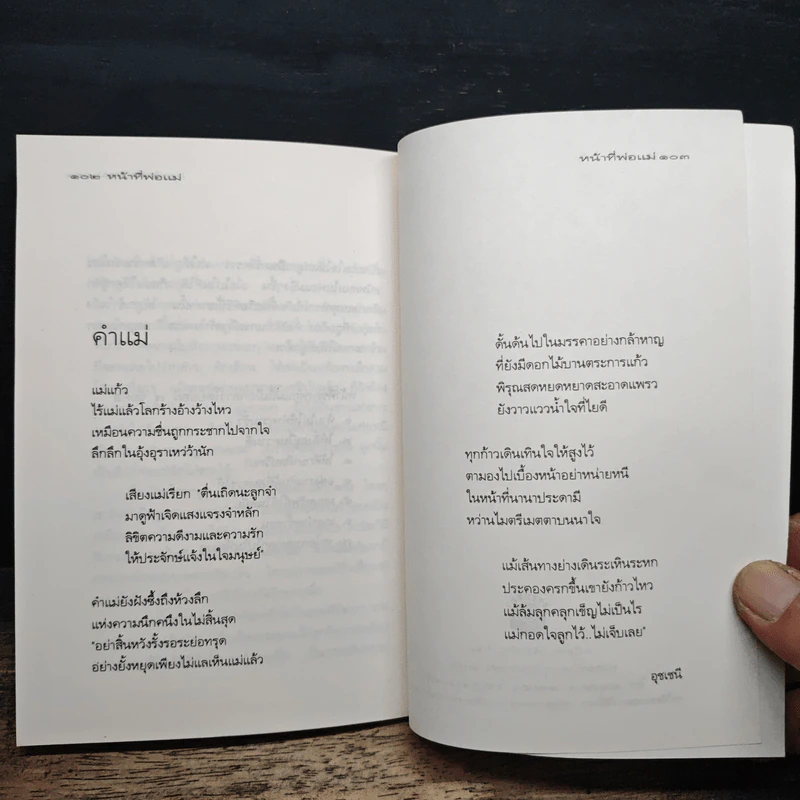 ๑๐๒ หน้าที่พ่อแม่
คำแม่
แม่แก้ว
ไร้แม่แล้วโลกร้างอ้างว้างไหว
เหมือนความชื่นถูกกระชากไปจากใจ
ลึกลึกในอุ้งอุราเหว่ว้านัก
เสียงแม่เรียก "ตื่นเถิดนะลูกจ๋า
มาดูฟ้าเจิดแสงแจรงจำหลัก
ลิขิตความดีงามและความรัก
ให้ประจักษ์แจ้งในใจมนุษย์"
คำแม่ยังฝังซึ้งถึงห้วงลึก
แห่งความนึกคนึงในไม่สิ้นสุด
"อย่าสิ้นหวังรั้งรอระย่อทรุด
อย่างยั้งหยุดเพียงไม่แลเห็นแม่แล้ว
หน้าที่พ่อแม่ ๑๐๓
ดั้นด้นไปในมรรคาอย่างกล้าหาญ
ที่ยังมีดอกไม้บานตระการแก้ว
พิรุณสดหยดหยาดสะอาดแพรว
ยังวาวแววน้ำใจที่ไยดี
ทุกก้าวเดินเทินใจให้สูงไว้
ตามองไปเบื้องหน้าอย่าหน่ายหนี
ในหน้าที่นานาประดามี
หว่านไมตรีเมตตาบนนาใจ
แม้เส้นทางย่างเดินระเหินระหก
ประคองครกขึ้นเขายังก้าวไหว
แม้ล้มลุกคลุกเข็ญไม่เป็นไร
แม่กอดใจลูกไว้..ไม่เจ็บเลย"
อุชเชนี